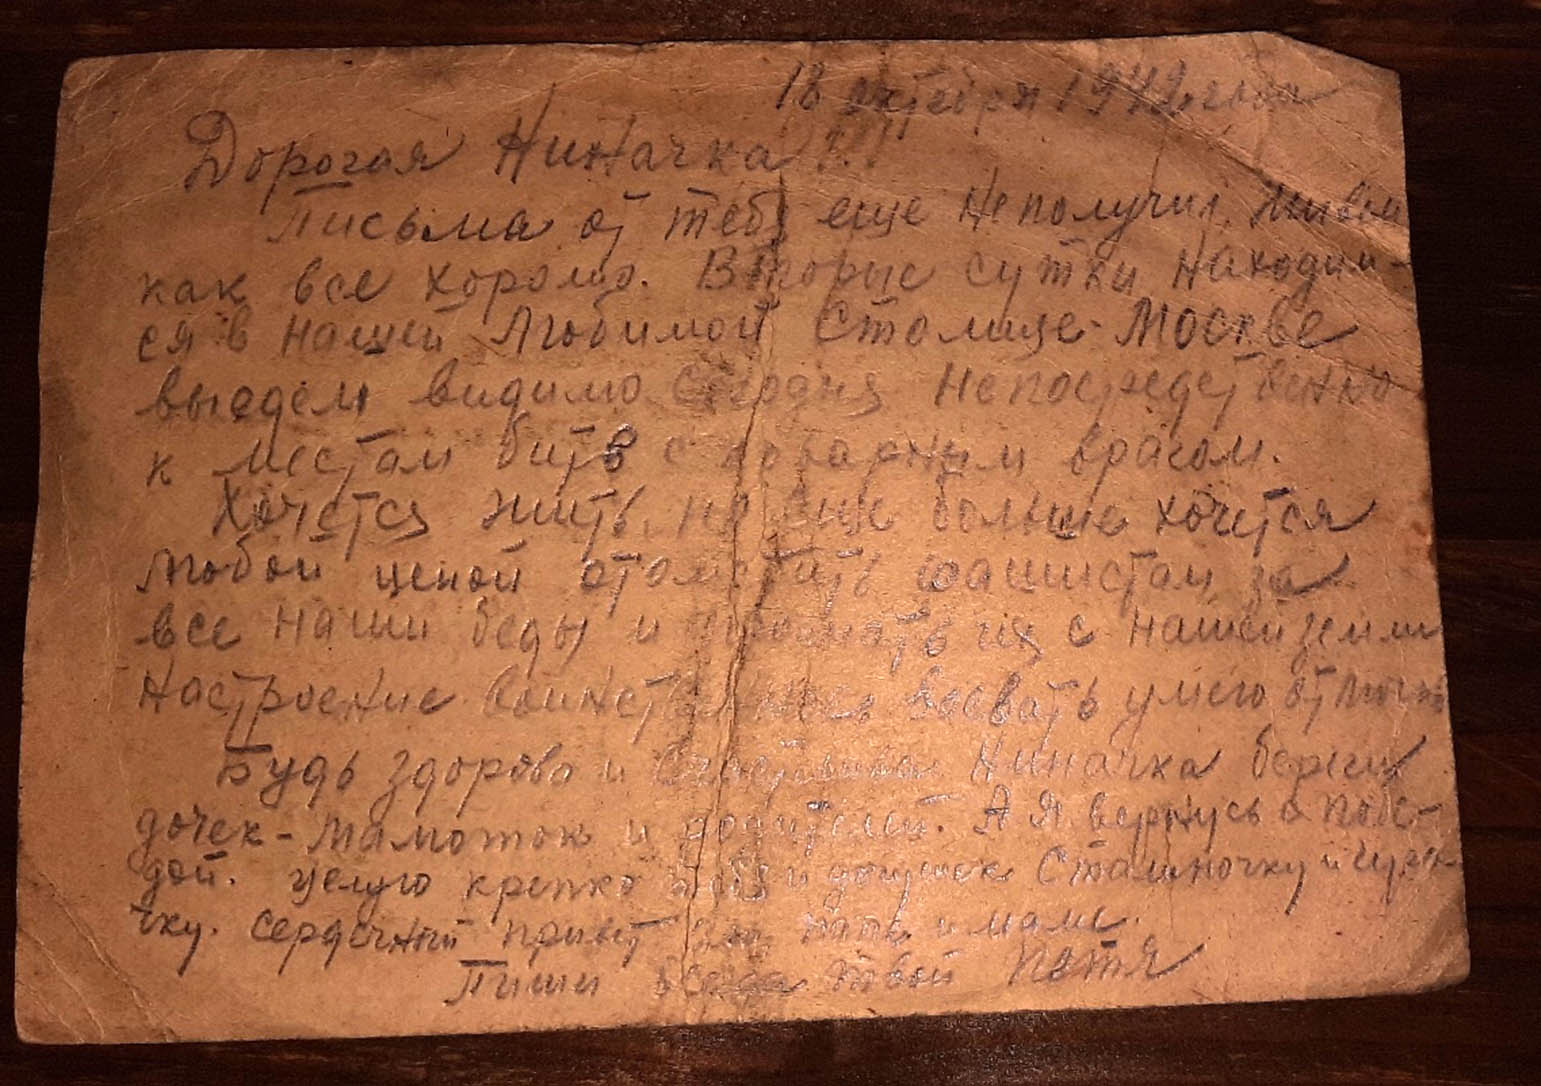 18 октября 1942 года
Дорогая Ниначка!!!
Письма от тебя еще не получил. Живем
как все хорошо. Вторые сутки находим-
ся в нашей Любимой Столице-Москве
выедем видимо сегодня непосредственно
к местам битв с коварным врагом.
Хочется жить, но еще больше хочется
любой ценой отомстить фашистам за
все наши беды и прогнать их с нашей земли
Настроение воинственное воевать умею
Будь здорова и счастлива Ниначка береги
дочек-Мамоток и родителей. А Я вернусь с побе-
дой. Целую крепко тебя и дочушек Сталиночку и
чку. Сердечный привет папе и маме.
Пиши всегда твой Петя